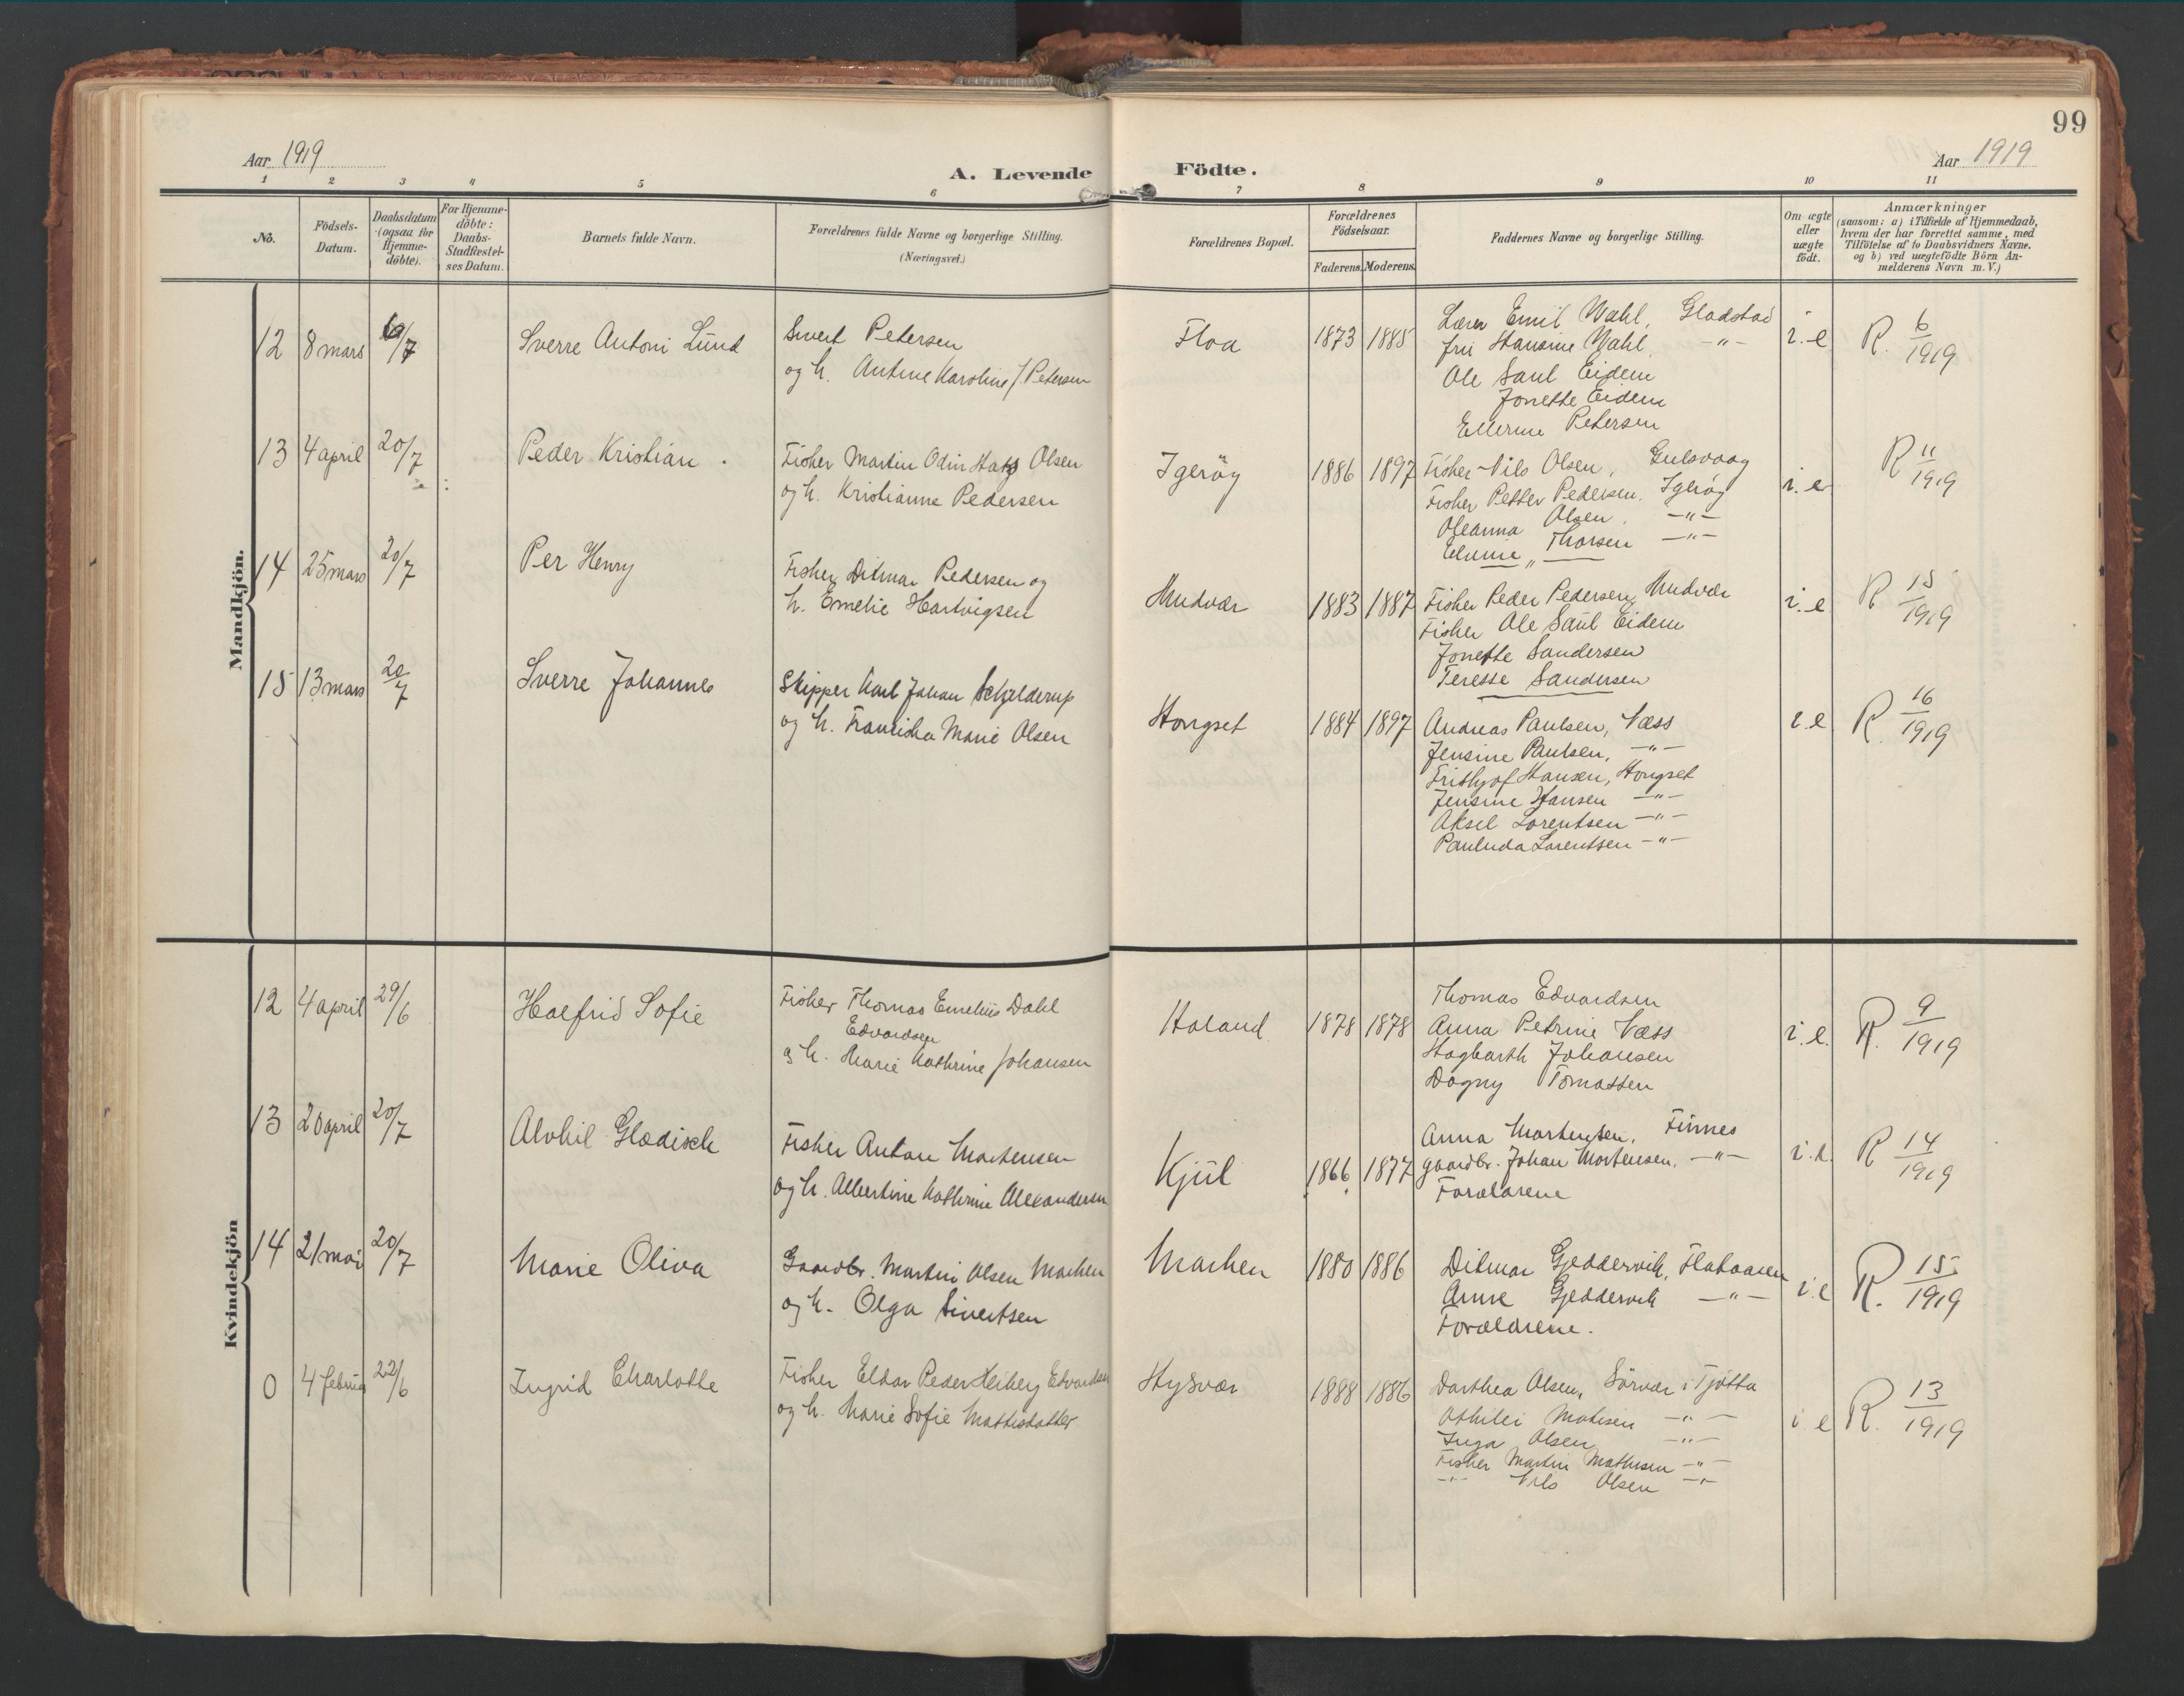 99
Aar 1919
A. Levende Födte.
Aar 1919
1 2 3 4 5 6 7 8 9 10 11
No.
Födsels-Datum.
Daabsdatum (ogsaa for Hjemme-döbte).
For Hjemme-döbte: Daabs-Stadfæstel-ses Datum.
Barnets fulde Navn.
Forældrenes fulde Navne og borgerlige Stilling. (Næringsvei.)
Forældrenes Bopæl.
Forældrenes Födselsaar.
Faderens. Moderens.
Faddernes Navne og borgerlige Stilling.
Om ægte eller uægte födt.
Anmærkninger
(saasom: a) i Tilfælde af Hjemmedaab,
hvem der har forrettet samme, med
Tilföielse af to Daabsvidners Navne.
og b) ved uægtefödte Börn An-
melderens Navn m. V.)
Mandkjön.
12 8 mars /7 Sverre Antoni Lund
Sivert Petersen
og h. Antine Karoline J. Petersen
Floa 1873 1885
Lærer Emil Wahl, Gladstad
fru Hansine Wahl. -"-
Ole Saul Eidem
Jonette Eidem
Ellerine Petersen
i.e. R. 6/1919
13 4 april 20/7 Peder Kristian.
Fisher Martin Odin Olsen
og h. Kristianne Pedersen
Igeröy 1886 1897
Fisher Nils Olsen, Gulsvaag
Fisher Petter Pedersen. Igeröy
Oleanna Olsen. -"-
Thorsen -"-
i.e. R 11/1919
14 25 mars 20/7 Per Henry
Fisher Ditmar Pedersen og
h. Emelie Hartvigsen
Hudvær 1883 1887
Fisher Peder Pedersen, Hudvær
Fisher Ole Saul Eidem
Jonette Sandersen
Teresse Sandersen
i.e. R 15/1919
15 13 mars 20/7 Sverre Johannes
Skipper Karl Johan Schjelderup
og h. Franciska Marie Olsen
Hongset 1884 1897
Andreas Paulsen, Næss
Jensine Paulsen, -"-
Frithjof Hansen, Hongset
Jensine Hansen -"-
Aksel Lorentsen -"-
Lorentsen -"-
i.e. R. 16/1919
Kvindekjön
12 4 april 29/6 Halfrid Sofie
Fisher Thomas Emelius Dahl
Edvardsen
og h. Marie Kathrine Johansen
Holand 1878 1878
Thomas Edvardsen
Anna Petrine Næss
Hagbarth Johansen
Dagny Tomassen
i.e. R. 9/1919
13 20 april 20/7 Alvhil Gladisch
Fisher Anton Martensen
og h. Albertine Kathrine Alexandersen
Kjul 1866 1877
Anna Mortensen, Finnes
gaardbr. Johan Mortensen, -"-
Forældrene
i.e. R 14/1919
14 21 mai 20/7 Marie Oliva
Gaardbr. Martin Olsen Marken
og h. Olga Sivertsen
Marken 1880 1886
Ditmar Gjeddervik, Flataaren
Anne Gjeddervik -"-
Forældrene.
i.e R. 15/1919
0 4 februa 22/6 Ingrid Charlotte
Fisher Eldar Peder Heiberg Edvardsen
og h. Marie Sofie Mathisdatter
Hysvær 1888 1886
Darthea Olsen, Sörvær i Tjötta
Mathisen -"-
Inga Olsen -"-
Fisher Martin Mathisen -"-
-"- Nils Olsen -"-
i e R. 13/1919